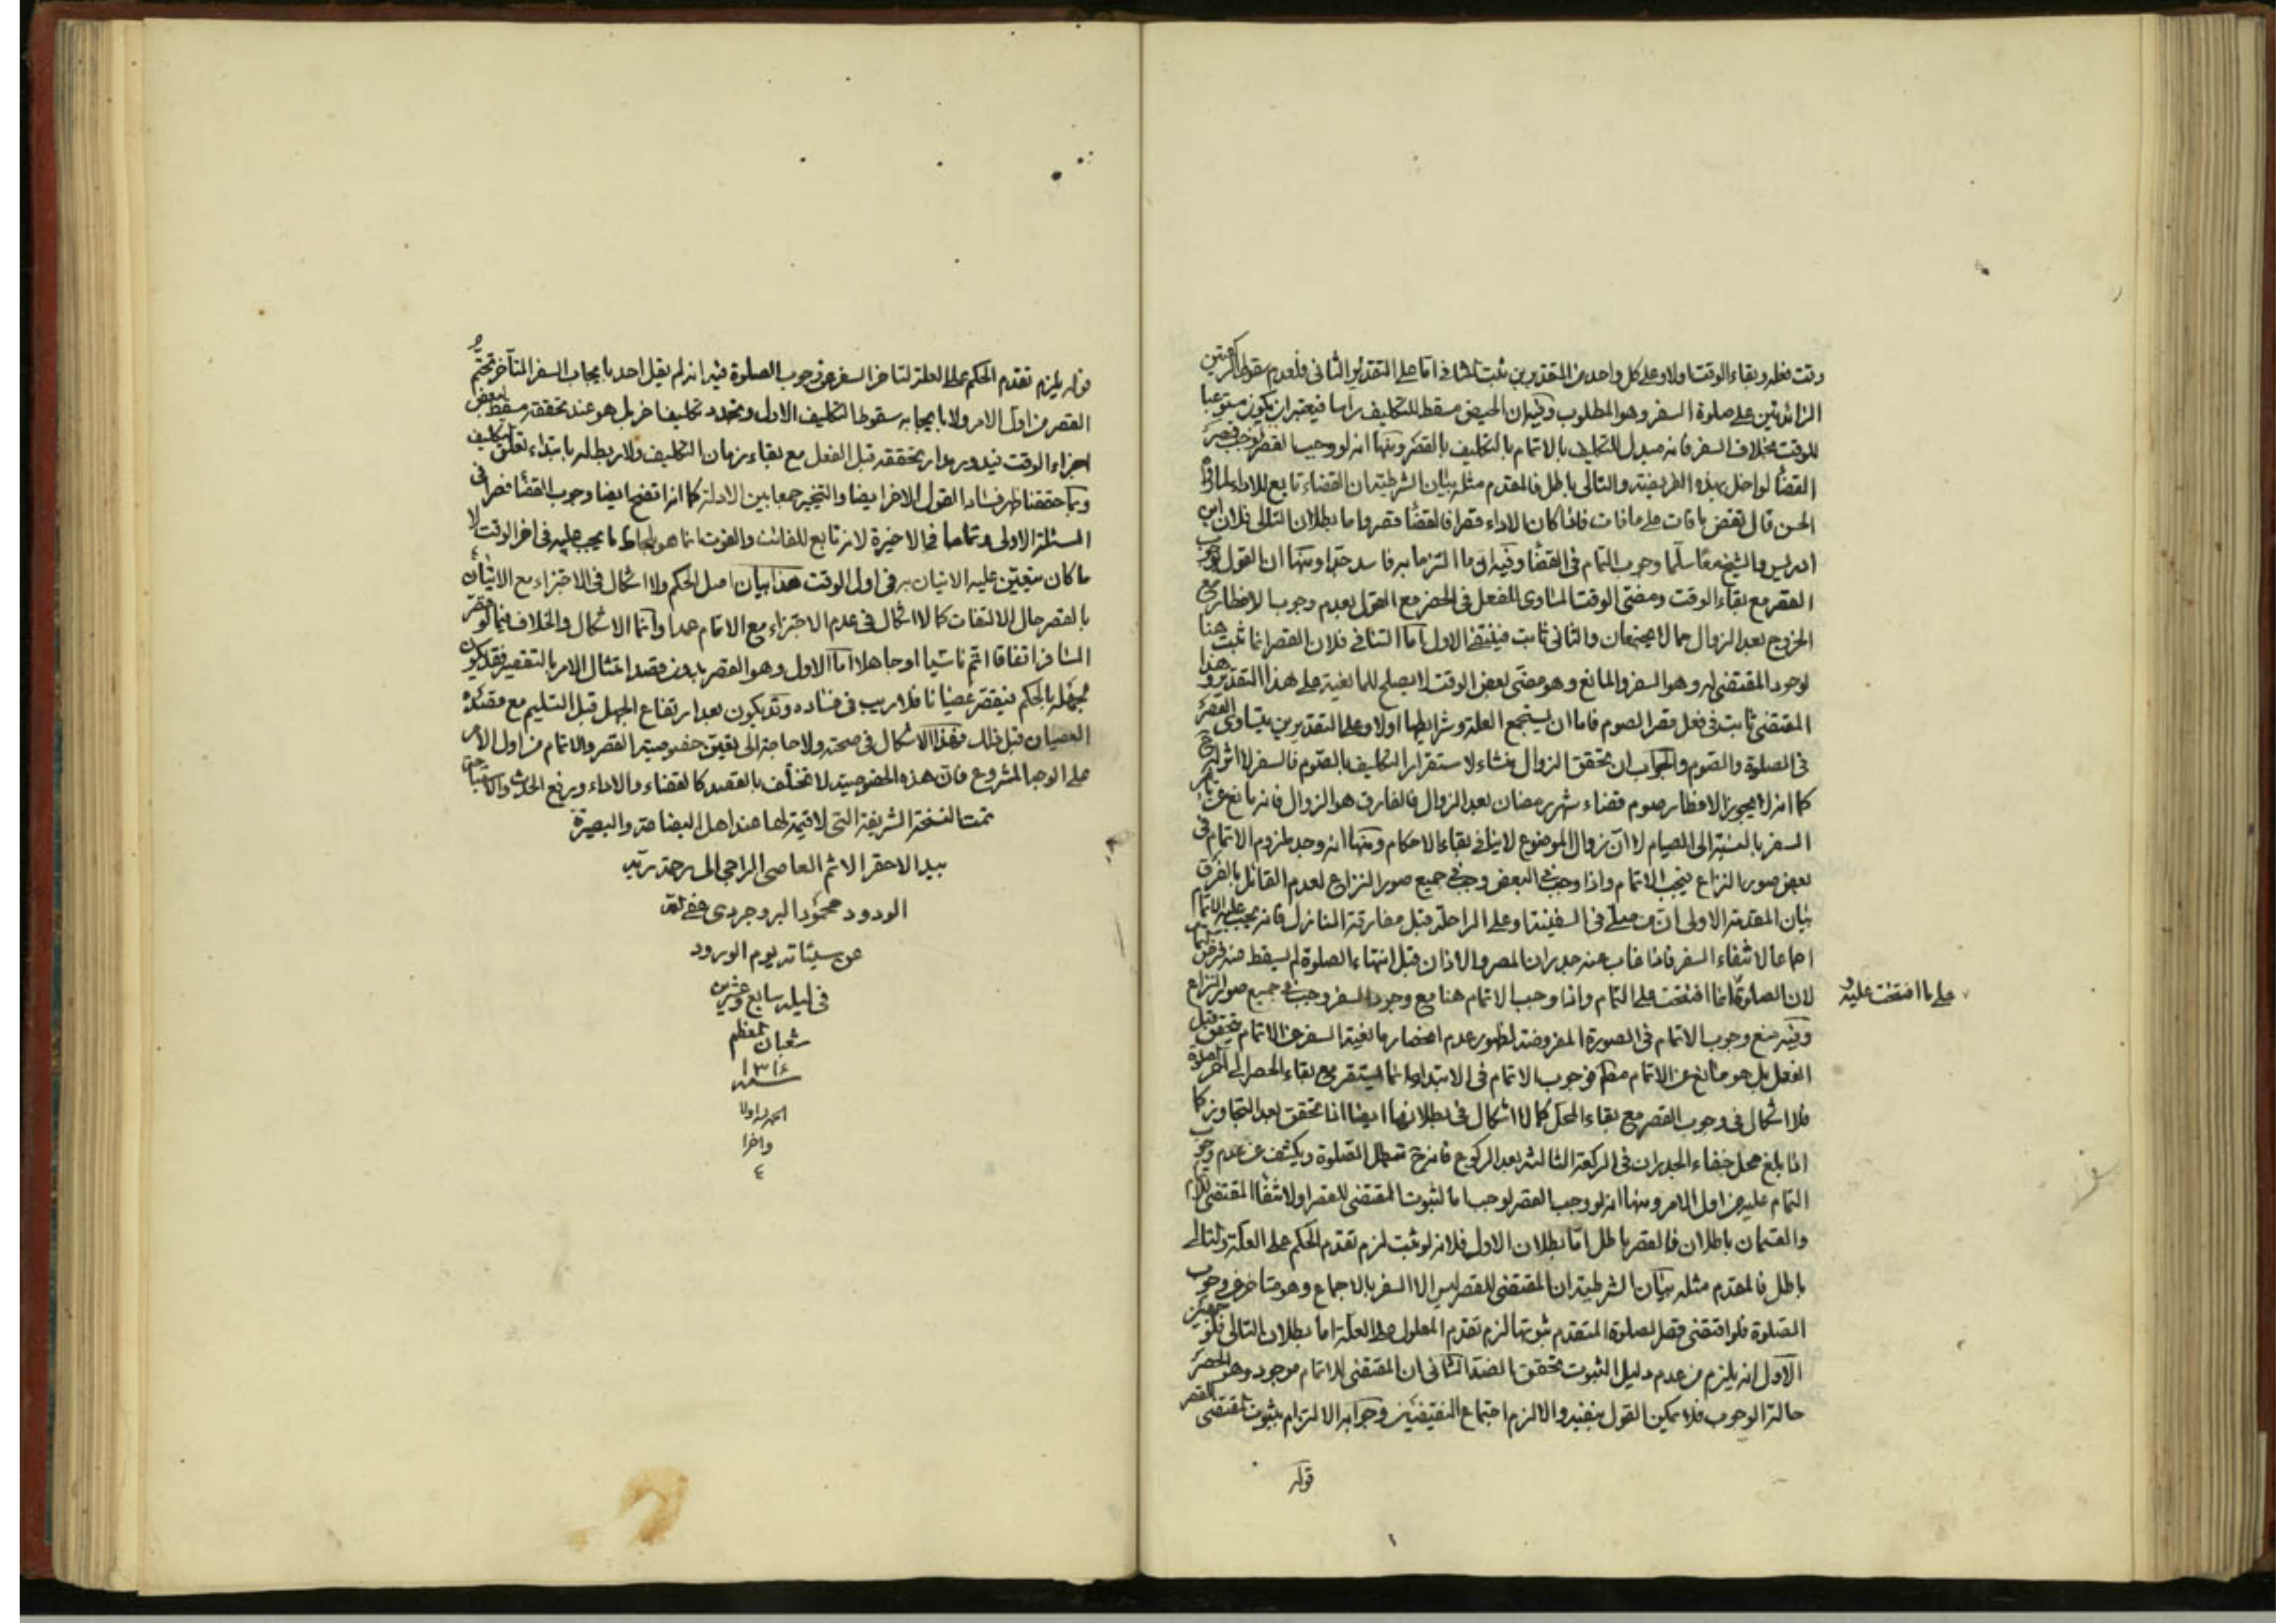 وقت فعله وبقاء الوقت اولا وعلى كل واحد من التقديرين ثبت المنافي اما على التقدير الثانى فلعدم سقوط الركعتين
الزائدتين على صلوة السفر وهو المطلوب وفيه ان الحيض مسقط للتكليف راسا فيعتبر ان يكون مستوعبا
للوقت بخلاف السفر فانه مبدل للتكليف بالاتمام بالتكليف بالقصر ومنها انه لو وجب القصر لوجب قصر
القضاء لو اخل بهذه الفريضة والتالى باطل فالمقدم مثله بيان الشرطية ان القضاء تابع للاداء
الحسن قال تقضى ما فات على ما فات فاذا كان الاداء قصرا فالقضاء قصر واما بطلان التالى فلان ابن
ادريس والشيخ معا سلما وجوب التمام فى القضاء وفيه ان ما التزما به فاسد جدا ومنها ان القول بوجوب
القصر مع بقاء الوقت ومضى الوقت المساوى للفعل فى الحضر مع القول بعدم وجوب الافطار مع
الخروج بعد الزوال مما لا يجتمعان والثانى ثابت فينتفى الاول اما التنافى فلان القصر انما ثبت هنا
لوجود المقتضى له وهو السفر والمانع وهو مضى بعض الوقت لا يصلح للمانعية على هذا التقدير وهذا
المقتضى ثابت فى فعل قصر الصوم فاما ان يستجمع العلة وشرايطها اولا وعلى التقديرين يتساوى القصر
فى الصلوة والصوم والجواب ان تحقق الزوال منشاء لاستقرار التكليف بالصوم فالسفر لا اثر له ح
كما انه لا يجوز الافطار بصوم قضاء شهر رمضان بعد الزوال فالفارق هو الزوال فانه مانع عن تاثير
السفر بالنسبة الى الصيام لا ان زوال الموضوع لا ينافى بقاء الاحكام ومنها انه وجد ملزوم الاتمام فى
بعض صور النزاع فيجب الاتمام واذا وجب فى البعض وجب فى جميع صور النزاع لعدم القائل بالفرق
بيان المقدمة الاولى ان من صلى فى السفينة او على الراحلة قبل مفارقة المنازل فانه يجب عليه الاتمام
اجماعا لانتفاء السفر فاذا غاب عنه جدران المصر والاذان قبل انتهاء الصلوة لم يسقط عنه فرض التمام
لان الصلوة انما افتتحت على التمام واذا وجب الاتمام هنا مع وجود السفر وجب فى جميع صور النزاع
على ما افتتحت عليه و
وفيه منع وجوب الاتمام فى الصورة المفروضة لظهور عدم انحصار مانعية السفر عن الاتمام بتحقق قبل
الفعل بل هو مانع عن الاتمام مطم فوجوب الاتمام فى الابتداء انما يستقر مع بقاء الحضر الى اخر الصلوة
فلا اشكال فى وجوب القصر مع بقاء المحل كما لا اشكال فى بطلانها ايضا اذا تحقق بعد التجاوز كما
اذا بلغ محل خفاء الجدران فى الركعة الثالثة بعد الركوع فانه ح تبطل الصلوة ويكشف عن عدم وجوب
التمام عليه من اول الامر ومنها انه لو وجب القصر لوجب اما لثبوت المقتضى للقصر او لانتفاء المقتضى للاتمام
والقسمان باطلان فالقصر باطل اما بطلان الاول فلانه لو ثبت لزم تقدم الحكم على العلة والتالى
باطل فالمقدم مثله بيان الشرطية ان المقتضى للقصر ليس الا السفر بالاجماع وهو متاخر عن وجوب
الصلوة فلو اقتضى قصر الصلوة المتقدم ثبوتها لزم تقدم المعلول على العلة اما بطلان التالى فلوجهين
الاول انه يلزم من عدم دليل الثبوت تحقق الضد الثانى ان المقتضى للاتمام موجود وهو الحضر
حالة الوجوب فلا يمكن القول بنفيه والا لزم اجتماع النقيضين وجوابه الالتزام بثبوت مقتضى القصر
قوله
قوله يلزم تقدم الحكم على العلة لتاخر السفر عن وجوب الصلوة فيه انه لم يقل احد بايجاب السفر المتاخر تحتم
القصر من اول الامر ولا بايجابه سقوط التكليف الاول وتجدد تكليف اخر بل هو عند تحققه مسقط لبعض
اجزاء الوقت فيدور مدار تحققه قبل الفعل مع بقاء زمان التكليف ولا ربط له بابتداء تعلق التكليف
وبما حققنا ظهر فساد القول الاخر ايضا والتخيير جمعا بين الادلة كما انه اتضح ايضا وجوب القضاء قصرا فى
المسئلة الاولى وتماما فى الاخيرة لانه تابع للفائت والفوت انما هو بلحاظ ما يجب عليه فى اخر الوقت لا
ما كان يتعين عليه الاتيان به فى اول الوقت هذا بيان اصل الحكم ولا اشكال فى الاجتزاء مع الاتيان
بالقصر حال الالتفات كما لا اشكال فى عدم الاجتزاء مع الاتمام عمدا وانما الاشكال والخلاف فيما لو قصر
المسافر اتفاقا او اتم ناسيا او جاهلا اما الاول وهو القصر بدون قصد امتثال الامر بالتقصير فقد يكون
بجهله بالحكم فيقصر عصيانا فلا ريب فى فساده وقد يكون بعد ارتفاع الجهل قبل التسليم مع قصده
العصيان قبل ذلك فهذا لا اشكال فى صحته ولا حاجة الى تعيين خصوصية القصر والاتمام من اول الامر
على الوجه المشروع فان هذه الخصوصية لا تختلف بالقصد كالقضاء والاداء ورفع الحدث والاستباحة
تمت النسخة الشريفة التى لا قيمة لها عند اهل البضاعة والبصيرة
بيد الاحقر الاثم العاصى الراجى الى رحمة ربه
الودود محمود البروجردى عفى الله
عن سيئاته يوم الورود
فى ليلة سابع وعشرين
شعبان المعظم
سنه ١٣١٤
الحمد لله اولا
واخرا
٤